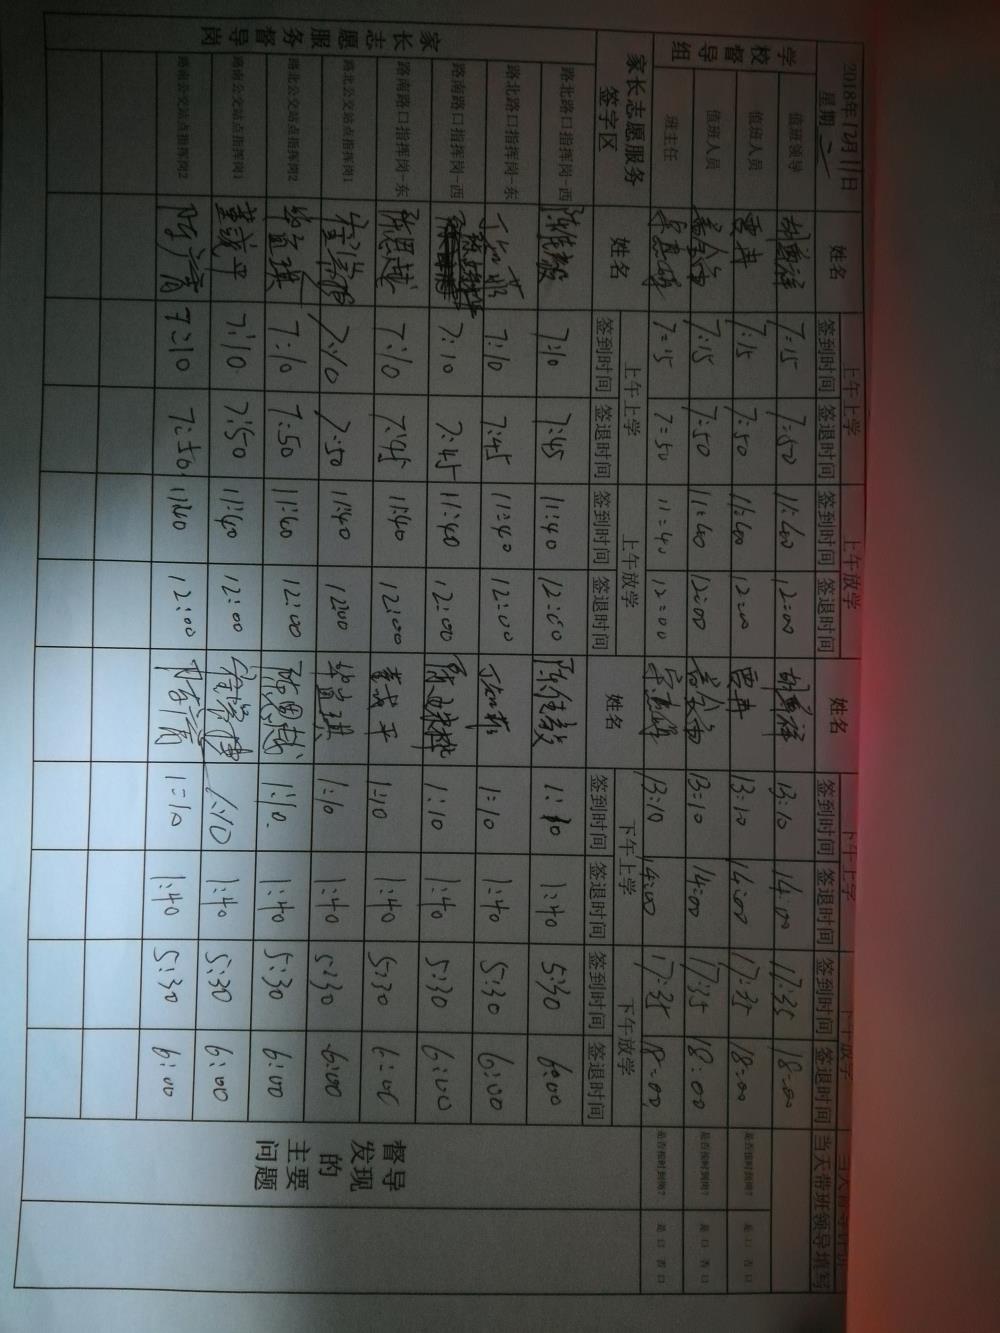 2018年12月11日
星期二
姓名
上午上学
上午放学
姓名
下午上学
下午放学
签到时间 签退时间 签到时间 签退时间 签到时间 签退时间 签到时间 签退时间
当天带班领导填写
学校督导组
值班领导 7:15 7:50 11:40 12:00 13:10 14:00 17:35 18:00
值班人员 贾冉 7:15 7:50 11:40 12:00 贾冉 13:10 14:00 17:35 18:00 是否按时到岗? 是口 否口
值班人员 7:15 7:50 11:40 12:00 13:10 14:00 17:35 18:00 是否按时到岗? 是口 否口
班主任 7:15 7:50 11:40 12:00 13:10 14:00 17:35 18:00 是否按时到岗? 是口 否口
家长志愿服务
签字区
姓名
上午上学
上午放学
姓名
下午上学
下午放学
签到时间 签退时间 签到时间 签退时间 签到时间 签退时间 签到时间 签退时间
督导发现的主要问题
家长志愿服务督导岗
路北路口指挥岗-西 7:10 7:45 11:40 12:00 1:10 1:40 5:30 6:00
路北路口指挥岗-东 7:10 7:45 11:40 12:00 1:10 1:40 5:30 6:00
路南路口指挥岗-西 7:10 7:45 11:40 12:00 1:10 1:40 5:30 6:00
路南路口指挥岗-东 陈思越 7:10 7:45 11:40 12:00 董成平 1:10 1:40 5:30 6:00
路北公交站点指挥岗1 7:10 7:50 11:40 12:00 1:10 1:40 5:30 6:00
路北公交站点指挥岗2 7:10 7:50 11:40 12:00 陈思越 1:10 1:40 5:30 6:00
路南公交站点指挥岗1 董成平 7:10 7:50 11:40 12:00 1:10 1:40 5:30 6:00
路南公交站点指挥岗2 7:10 7:50 11:40 12:00 1:10 1:40 5:30 6:00